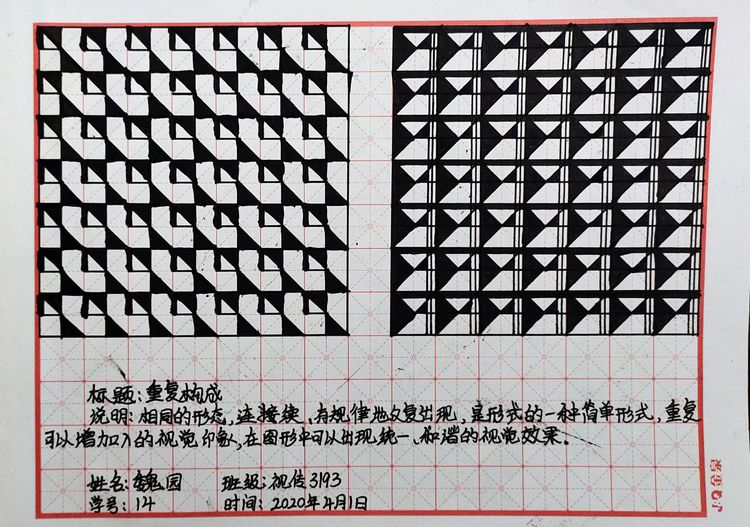 标题:重复构成
说明:相同的形态,连接续,有规律地反复出现,是形式的一种简单形式,重复
可以增加人的视觉印象,在图形中可以出现统一、和谐的视觉效果。
姓名:魏园 班级:视传3193
学号:14 时间:2020年4月1日
金泉